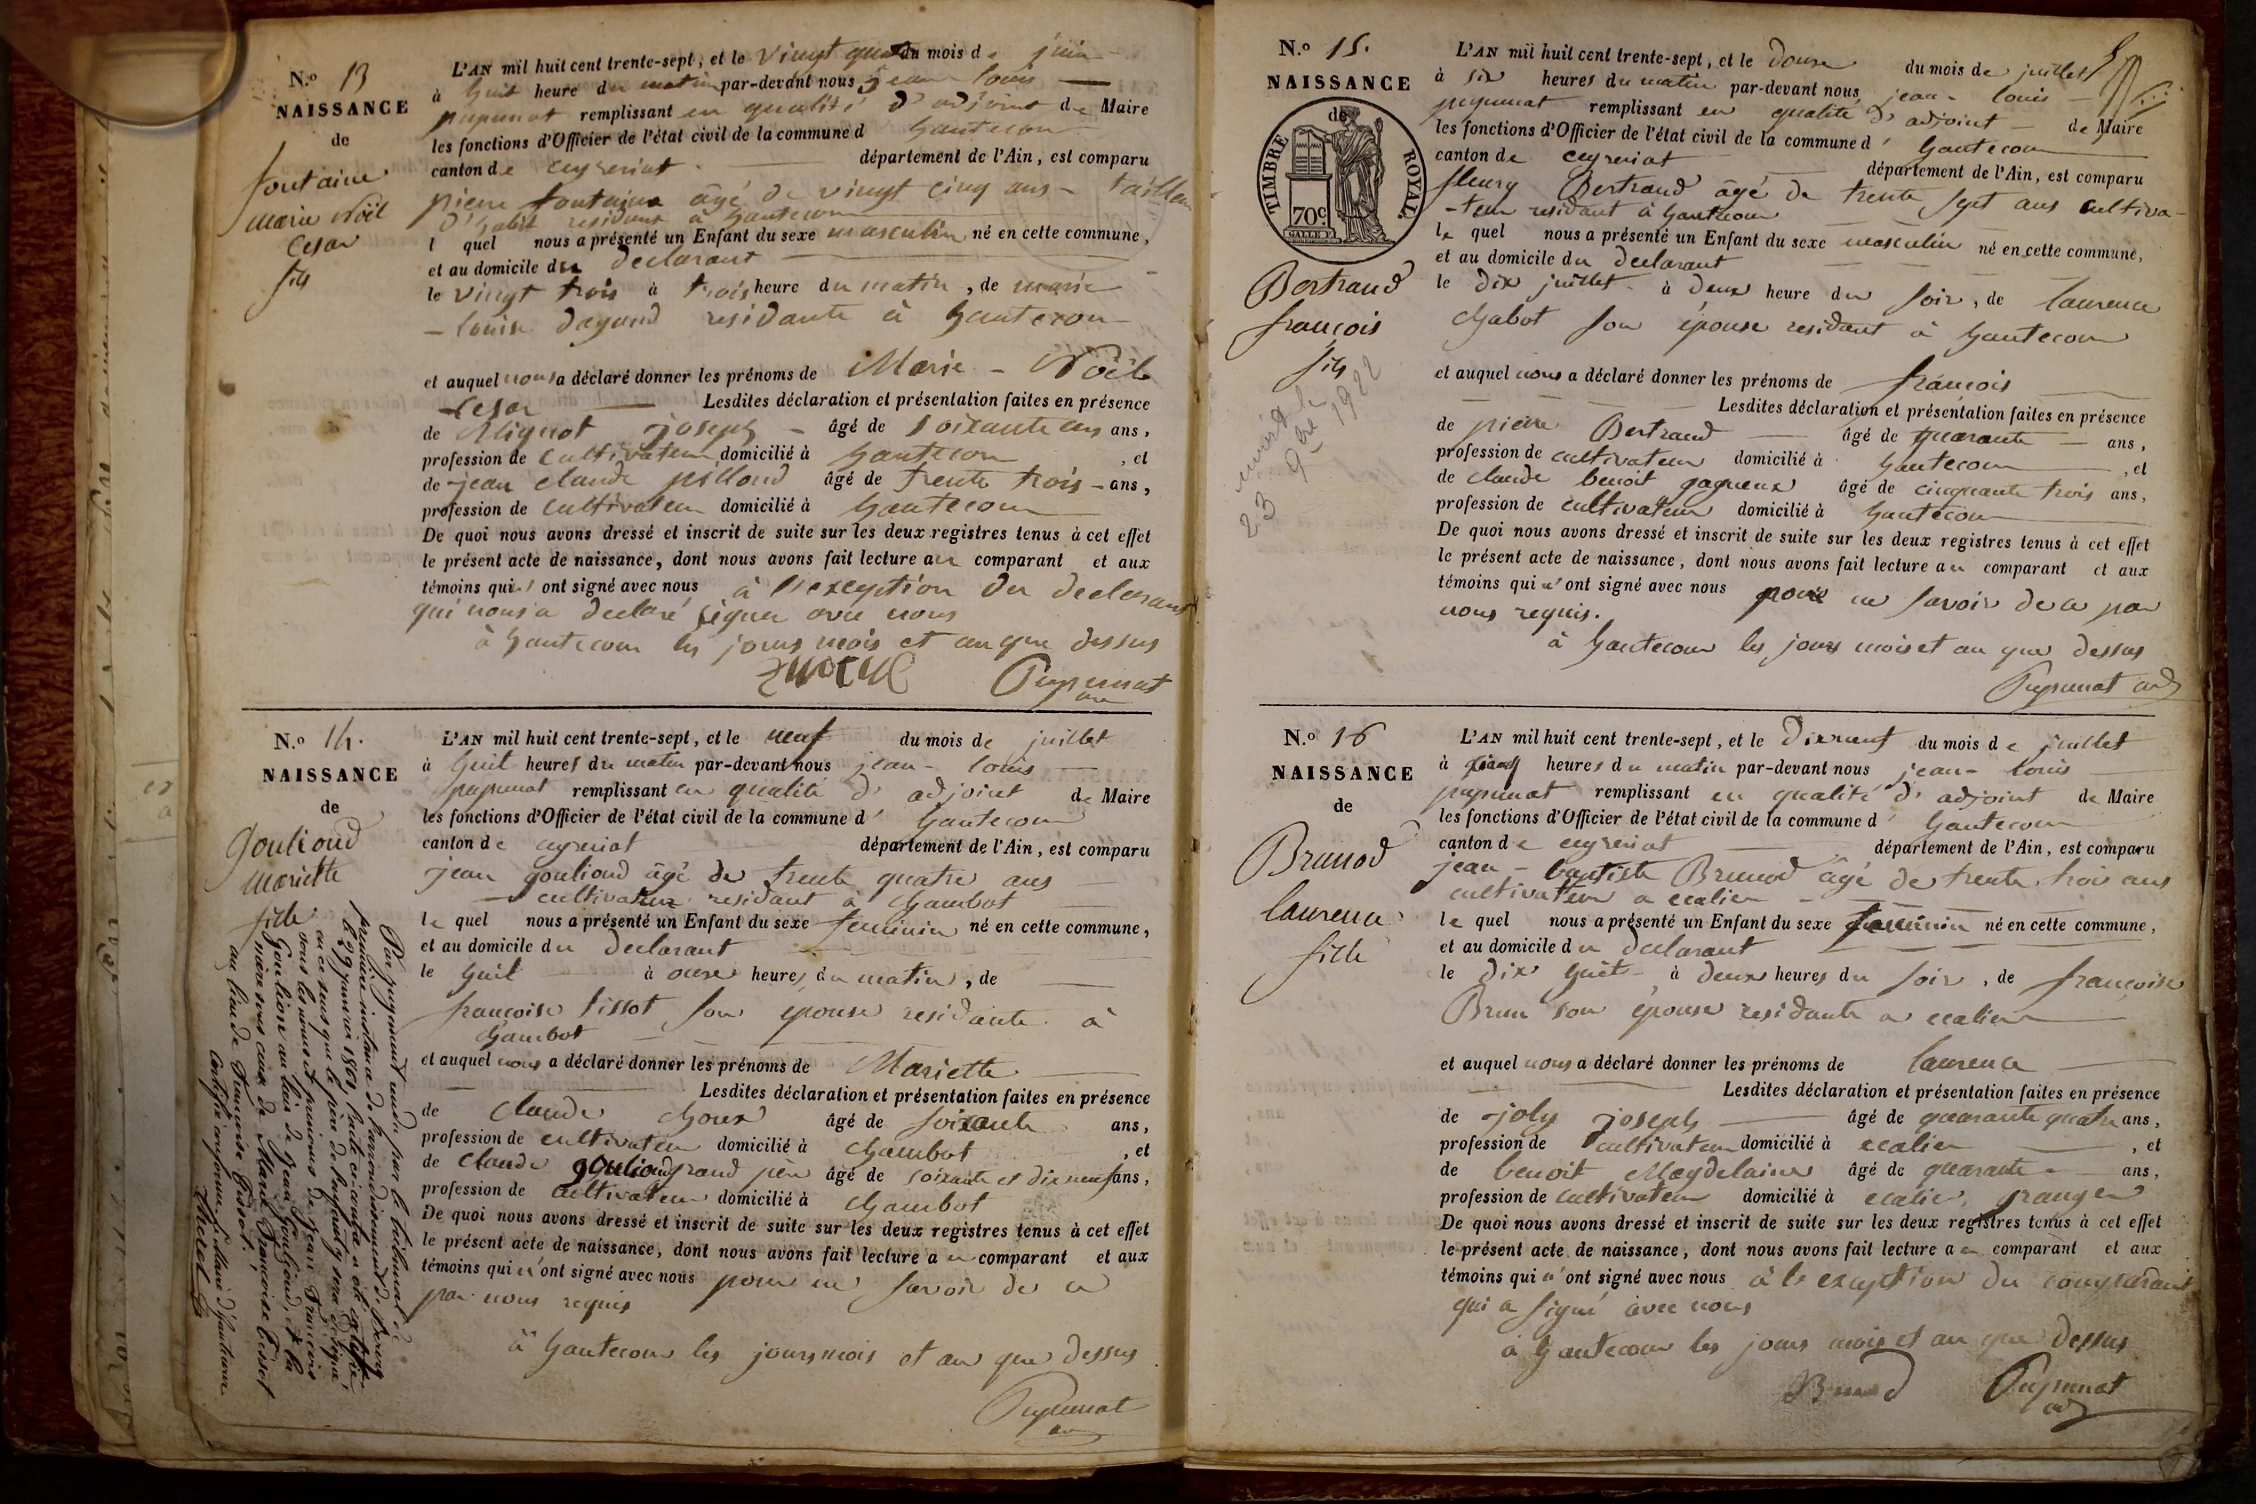 N.º 13
NAISSANCE
de
fontaine
marie Noël
Cesar
fils
L'AN mil huit cent trente-sept, et le vingt quatre du mois de juin
à huit heure du matin par-devant nous jean louis
pupunat remplissant en qualité d'adjoint de Maire
les fonctions d'Officier de l'état civil de la commune d hautecour
canton de ceyzeriat département de l'Ain, est comparu
pierre fontaine âgé de vingt cinq ans - tailleur
d'habit residant à hautecour
l quel nous a présenté un Enfant du sexe masculin né en cette commune,
et au domicile du declarant
le vingt trois à trois heure du matin, de marie
- louise dagand residante à hautecour
et auquel nous a déclaré donner les prénoms de Marie - Noël
- Cesar Lesdites déclaration et présentation faites en présence
de Mignot joseph - âgé de soixante ans,
profession de cultivateur domicilié à hautecour, et
de jean claude pilloud âgé de trente trois - ans,
profession de cultivateur domicilié à hautecour
De quoi nous avons dressé et inscrit de suite sur les deux registres tenus à cet effet
le présent acte de naissance, dont nous avons fait lecture au comparant et aux
témoins qui n'ont signé avec nous à l'exception du declarant
qui nous a declaré signer avec nous
à hautecour les jours mois et an que dessus
Pupunat
N.º 14.
NAISSANCE
de
Goulioud
Mariette
fille
L'AN mil huit cent trente-sept, et le neuf du mois de juillet
à huit heures du matin par-devant nous jean - louis
pupunat remplissant en qualité d'adjoint de Maire
les fonctions d'Officier de l'état civil de la commune d' hautecour
canton de ceyzeriat département de l'Ain, est comparu
jean goulioud âgé de trente quatre ans
- cultivateur residant à Chambot
le quel nous a présenté un Enfant du sexe feminin né en cette commune,
et au domicile du declarant
le huit à onze heures du matin, de
francoise tissot son epouse residante à
Chambot
et auquel nous a déclaré donner les prénoms de Mariette
Lesdites déclaration et présentation faites en présence
de claude âgé de soixante ans,
profession de cultivateur domicilié à Chambot, et
de claude goulioud grand père âgé de soixante et dix neuf ans,
profession de cultivateur domicilié à Chambot
De quoi nous avons dressé et inscrit de suite sur les deux registres tenus à cet effet
le présent acte de naissance, dont nous avons fait lecture au comparant et aux
témoins qui n'ont signé avec nous pour ne savoir de ce
par nous requis
à hautecour les jours mois et an que dessus
Pupunat
Par jugement rendu par le tribunal de
première instance de l'arrondissement de Bourg
le 29 janvier 1861, l'acte ci-contre a été rectifié
en ce sens que le père de l'enfant y sera désigné
sous les noms et prénoms de Jean François
Goulion au lieu de Jean Goulioud, et la
mère sous ceux de Marie Françoise Tissot
au lieu de Françoise Tissot.
Certifié conforme, le Maire d'hautecour
N.º 15.
NAISSANCE
de
TIMBRE ROYAL.
70c
GALLE F.
Bertrand
francois
fils
mort le
23 9bre 1922
L'AN mil huit cent trente-sept, et le douze du mois de juillet
à six heures du matin par-devant nous jean - louis
pupunat remplissant en qualité d'adjoint de Maire
les fonctions d'Officier de l'état civil de la commune d' hautecour
canton de ceyzeriat département de l'Ain, est comparu
fleury Bertrand âgé de trente sept ans cultiva-
-teur residant à hautecour
le quel nous a présenté un Enfant du sexe masculin né en cette commune,
et au domicile du declarant
le dix juillet à deux heure du soir, de laurence
chabot son épouse residant à hautecour
et auquel nous a déclaré donner les prénoms de francois
Lesdites déclaration et présentation faites en présence
de pierre Bertrand âgé de quarante ans,
profession de cultivateur domicilié à hautecour, et
de claude benoit gagneux âgé de cinquante trois ans,
profession de cultivateur domicilié à hautecour
De quoi nous avons dressé et inscrit de suite sur les deux registres tenus à cet effet
le présent acte de naissance, dont nous avons fait lecture au comparant et aux
témoins qui n'ont signé avec nous pour ne savoir de ce par
nous requis.
à hautecour les jours mois et an que dessus
Pupunat adj
N.º 16
NAISSANCE
de
Brunod
laurence
fille
L'AN mil huit cent trente-sept, et le dixneuf du mois de juillet
à heures du matin par-devant nous jean - louis
pupunat remplissant en qualité d'adjoint de Maire
les fonctions d'Officier de l'état civil de la commune d' hautecour
canton de ceyzeriat département de l'Ain, est comparu
jean - baptiste Brunod âgé de trente trois ans
cultivateur a ecalier
le quel nous a présenté un Enfant du sexe feminin né en cette commune,
et au domicile du declarant
le dix huit à deux heures du soir, de francoise
Brun son épouse residante a ecalier
et auquel nous a déclaré donner les prénoms de laurence
Lesdites déclaration et présentation faites en présence
de joly joseph âgé de quarante quatre ans,
profession de cultivateur domicilié à ecalier, et
de benoit Magdelaine âgé de quarante ans,
profession de cultivateur domicilié à ecalier, granger
De quoi nous avons dressé et inscrit de suite sur les deux registres tenus à cet effet
le présent acte de naissance, dont nous avons fait lecture au comparant et aux
témoins qui n'ont signé avec nous à le exception du comparant
qui a signé avec nous
à hautecour les jours mois et an que dessus
Brunod Pupunat
adj